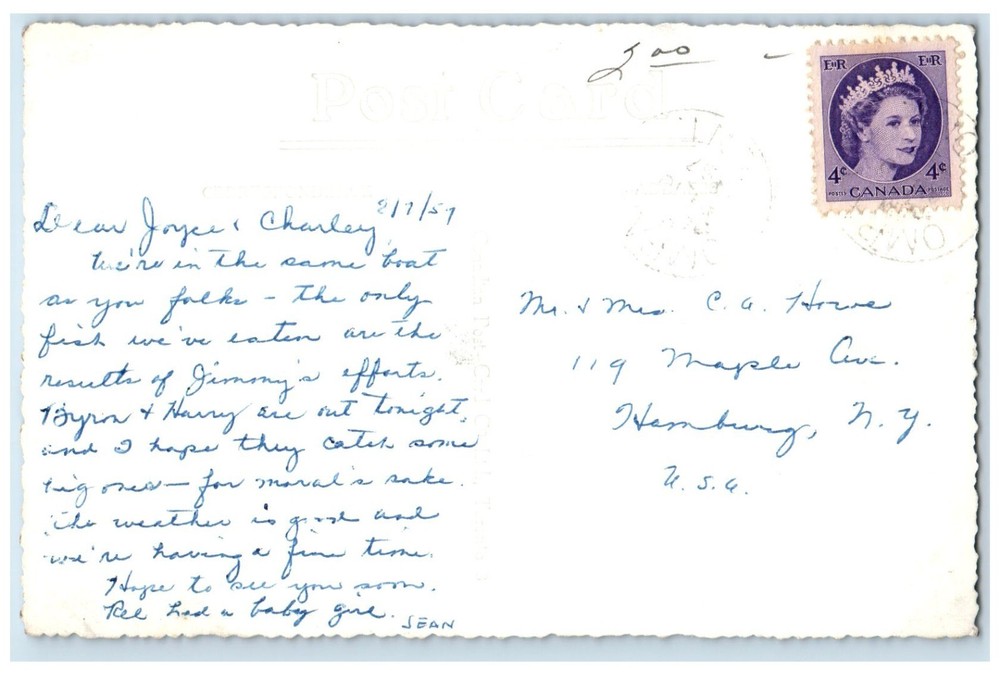 2 00 -
Post Card
EIIR EIIR
4¢ 4¢
POSTES CANADA POSTAGE
Dear Joyce & Charley, 8/7/57
We're in the same boat
as you folks - the only
fish we've eaten are the
results of Jimmy's efforts.
Byron & Harry are out tonight,
and I hope they catch some
big ones - for moral's sake.
The weather is good and
we're having a fine time.
Hope to see you soon.
had a baby girl.
SEAN
Mr. & Mrs. C. A. Howe
119 Maple Ave.
Hamburg, N.Y.
U.S.A.